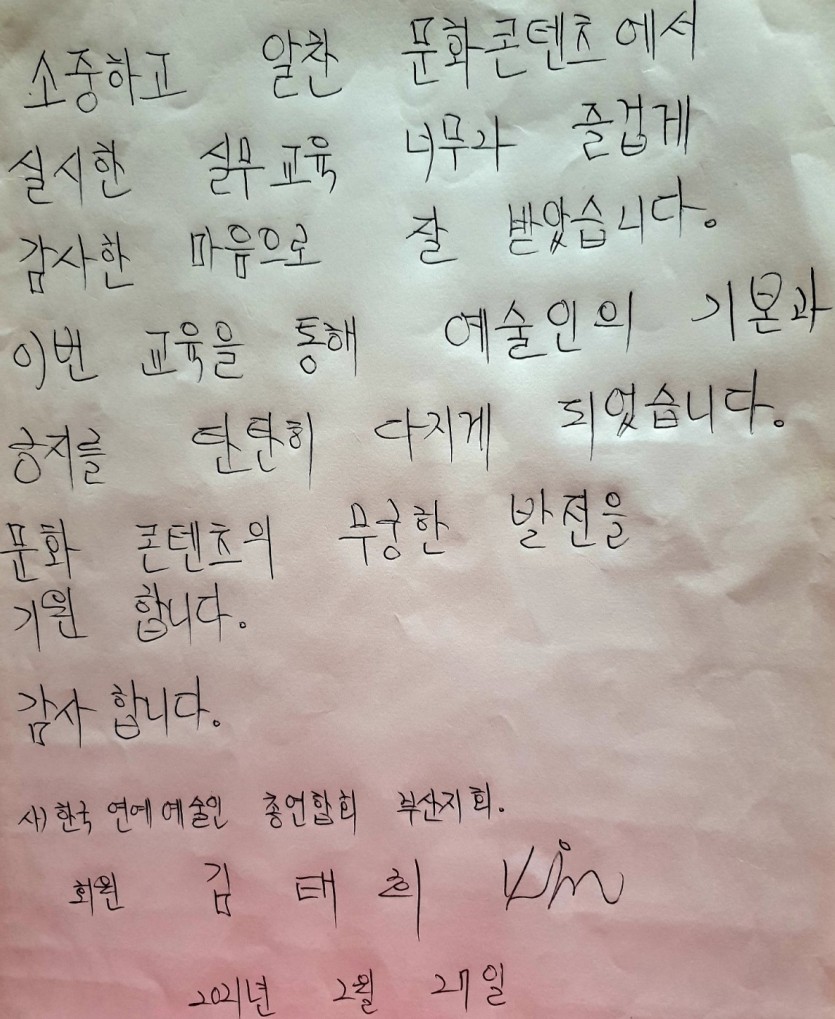 소중하고 알찬 문화콘텐츠에서
실시한 실무교육 너무나 즐겁게
감사한 마음으로 잘 받았습니다.
이번 교육을 통해 예술인의 기본과
긍지를 탄탄히 다지게 되었습니다.
문화 콘텐츠의 무궁한 발전을
기원 합니다.
감사 합니다.
사) 한국 연예 예술인 총연합회 부산지회.
회원 김 태 희 Kim
2021년 2월 27일